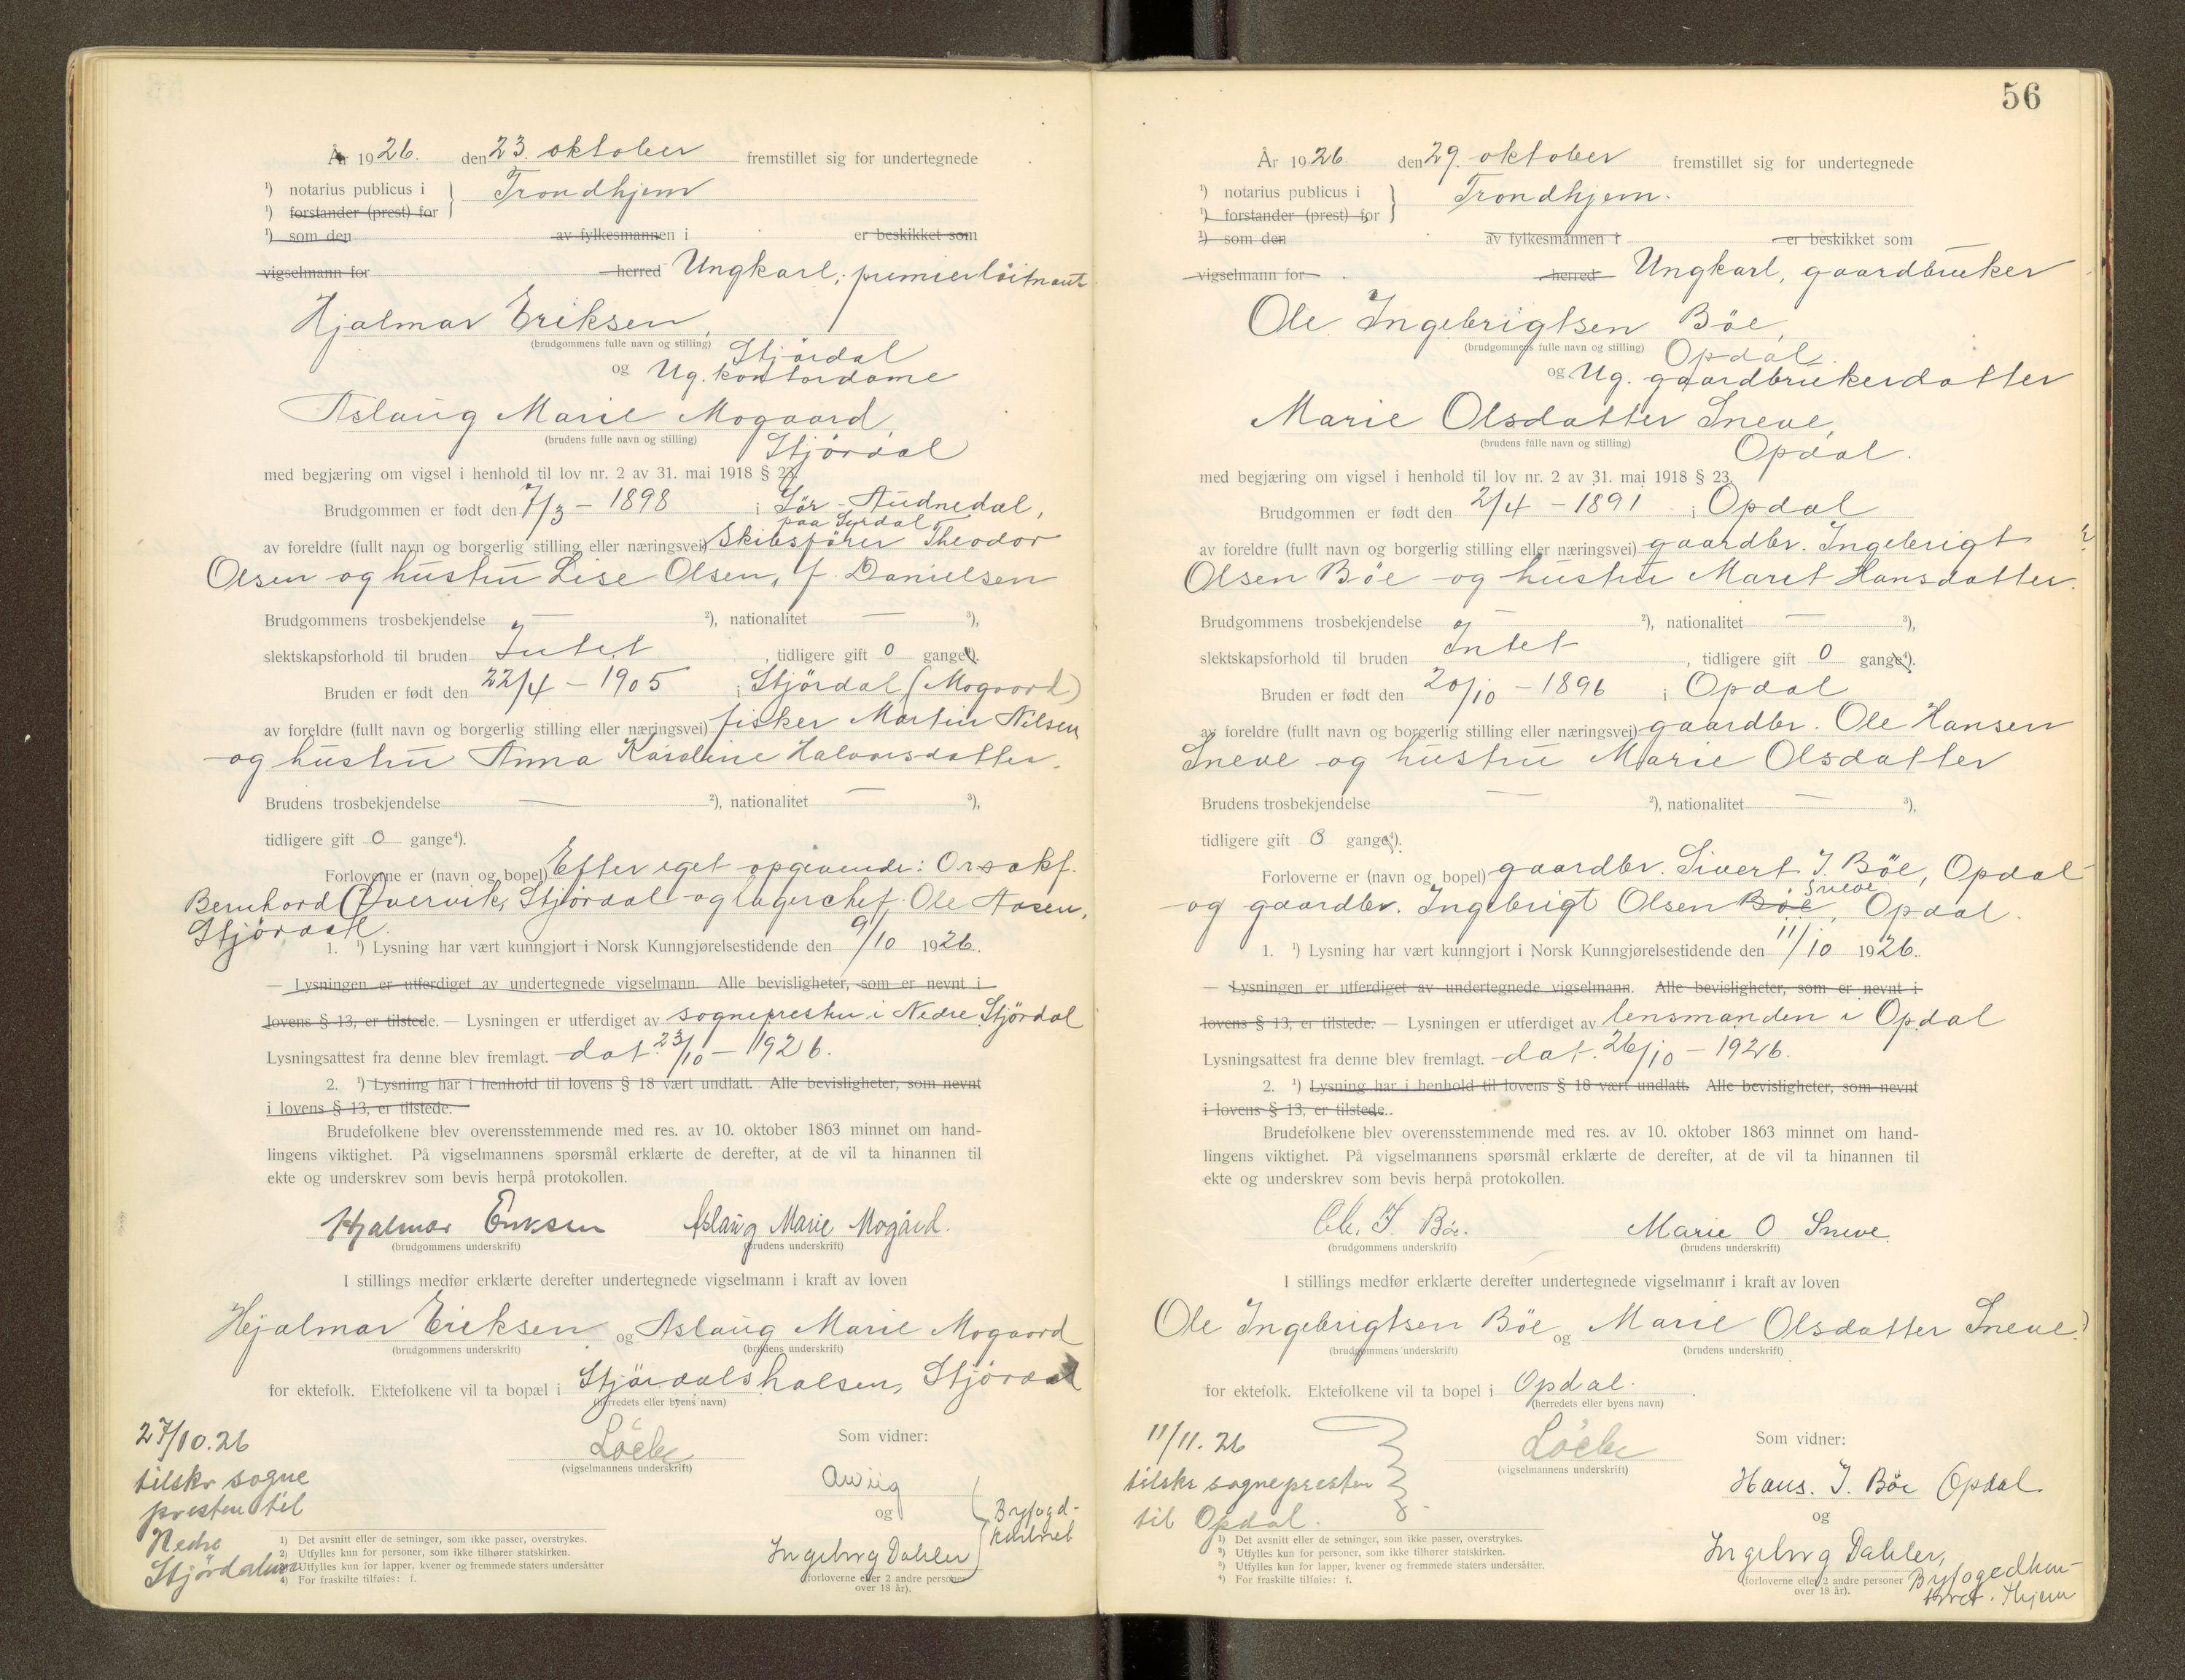 År 1926. den 23. oktober fremstillet sig for undertegnede
¹) notarius publicus i } Trondhjem
¹) forstander (prest) for
¹) som den av fylkesmannen i er beskikket som
vigselmann for herred Ungkarl, premierløitnant
Hjalmar Eriksen,
(brudgommens fulle navn og stilling) Stjørdal
og Ug. kontordame
Aslaug Marie Mogaard,
(brudens fulle navn og stilling) Stjørdal
med begjæring om vigsel i henhold til lov nr. 2 av 31. mai 1918 § 23.
Brudgommen er født den 7/3 - 1898 i Sør-Audnedal,
paa Syrdal
av foreldre (fullt navn og borgerlig stilling eller næringsvei) Skibsfører Theodor
Olsen og hustru Lise Olsen, f. Danielsen
Brudgommens trosbekjendelse — ²), nationalitet — ³),
slektskapsforhold til bruden Intet, tidligere gift 0 gange⁴).
Bruden er født den 22/4 - 1905 i Stjørdal (Mogaard)
av foreldre (fullt navn og borgerlig stilling eller næringsvei) fisker Martin Nilsen
og hustru Anna Karoline Halvorsdatter.
Brudens trosbekjendelse — ²), nationalitet — ³),
tidligere gift 0 gange⁴).
Forloverne er (navn og bopel) Efter eget opgivende: Orsakf.
Bernhard Øvervik, Stjørdal og lagerchef Ole Aasen,
Stjørdal.
1. ¹) Lysning har vært kunngjort i Norsk Kunngjørelsestidende den 9/10 1926.
— Lysningen er utferdiget av undertegnede vigselmann. Alle bevisligheter, som er nevnt i
lovens § 13, er tilstede. — Lysningen er utferdiget av sognepresten i Nedre Stjørdal
Lysningsattest fra denne blev fremlagt. - dat. 23/10 - 1926.
2. ¹) Lysning har i henhold til lovens § 18 vært undlatt. Alle bevisligheter, som nevnt
i lovens § 13, er tilstede.
Brudefolkene blev overensstemmende med res. av 10. oktober 1863 minnet om hand-
lingens viktighet. På vigselmannens spørsmål erklærte de derefter, at de vil ta hinannen til
ekte og underskrev som bevis herpå protokollen.
Hjalmar Eriksen Aslaug Marie Mogård.
(brudgommens underskrift) (brudens underskrift)
I stillings medfør erklærte derefter undertegnede vigselmann i kraft av loven
Hjalmar Eriksen og Aslaug Marie Mogaard
(brudgommens underskrift) (brudens underskrift)
for ektefolk. Ektefolkene vil ta bopæl i Stjørdalshalsen, Stjørdal
(herredets eller byens navn)
27/10.26
tilskr sogne
presten til
Nedre
Stjørdalen
Løcke
(vigselmannens underskrift)
Som vidner:
og
Ingeborg Dahler } Byfogd-
kontoret
(forloverne eller 2 andre personer
over 18 år).
1) Det avsnitt eller de setninger, som ikke passer, overstrykes.
2) Utfylles kun for personer, som ikke tilhører statskirken.
3) Utfylles kun for lapper, kvener og fremmede staters undersåtter
4) For fraskilte tilføies: f.
56
År 1926 den 29. oktober fremstillet sig for undertegnede
¹) notarius publicus i } Trondhjem.
¹) forstander (prest) for
¹) som den av fylkesmannen i er beskikket som
vigselmann for herred Ungkarl, gaardbruker
Ole Ingebrigtsen Böe,
(brudgommens fulle navn og stilling) Opdal.
og Ug. gaardbrukerdatter
Marie Olsdatter Sneve,
(brudens fulle navn og stilling) Opdal.
med begjæring om vigsel i henhold til lov nr. 2 av 31. mai 1918 § 23.
Brudgommen er født den 2/4 - 1891 i Opdal
av foreldre (fullt navn og borgerlig stilling eller næringsvei) gaardbr. Ingebrigt
Olsen Böe og hustru Marit Hansdatter.
Brudgommens trosbekjendelse — ²), nationalitet — ³),
slektskapsforhold til bruden Intet, tidligere gift 0 gange⁴).
Bruden er født den 20/10 - 1896 i Opdal
av foreldre (fullt navn og borgerlig stilling eller næringsvei) gaardbr. Ole Hansen
Sneve og hustru Marie Olsdatter
Brudens trosbekjendelse — ²), nationalitet — ³),
tidligere gift 0 gange⁴).
Forloverne er (navn og bopel) gaardbr. Sivert I. Böe, Opdal
Sneve
og gaardbr. Ingebrigt Olsen Böe, Opdal.
1. ¹) Lysning har vært kunngjort i Norsk Kunngjørelsestidende den 11/10 1926.
— Lysningen er utferdiget av undertegnede vigselmann. Alle bevisligheter, som er nevnt i
lovens § 13, er tilstede. — Lysningen er utferdiget av lensmanden i Opdal
Lysningsattest fra denne blev fremlagt. - dat. 26/10 - 1926.
2. ¹) Lysning har i henhold til lovens § 18 vært undlatt. Alle bevisligheter, som nevnt
i lovens § 13, er tilstede.
Brudefolkene blev overensstemmende med res. av 10. oktober 1863 minnet om hand-
lingens viktighet. På vigselmannens spørsmål erklærte de derefter, at de vil ta hinannen til
ekte og underskrev som bevis herpå protokollen.
Ole. I. Böe. Marie O Sneve.
(brudgommens underskrift) (brudens underskrift)
I stillings medfør erklærte derefter undertegnede vigselmann i kraft av loven
Ole Ingebrigtsen Böe og Marie Olsdatter Sneve.
(brudgommens underskrift) (brudens underskrift)
for ektefolk. Ektefolkene vil ta bopel i Opdal.
(herredets eller byens navn)
11/11. 26
tilskr sognepresten
til Opdal.
Løcke
(vigselmannens underskrift)
Som vidner:
Hans. I. Böe Opdal
og
Ingeborg Dahler,
Byfogedkon-
toret. Thjem
(forloverne eller 2 andre personer
over 18 år).
¹) Det avsnitt eller de setninger, som ikke passer, overstrykes.
²) Utfylles kun for personer, som ikke tilhører statskirken.
³) Utfylles kun for lapper, kvener og fremmede staters undersåtter.
⁴) For fraskilte tilføies: f.